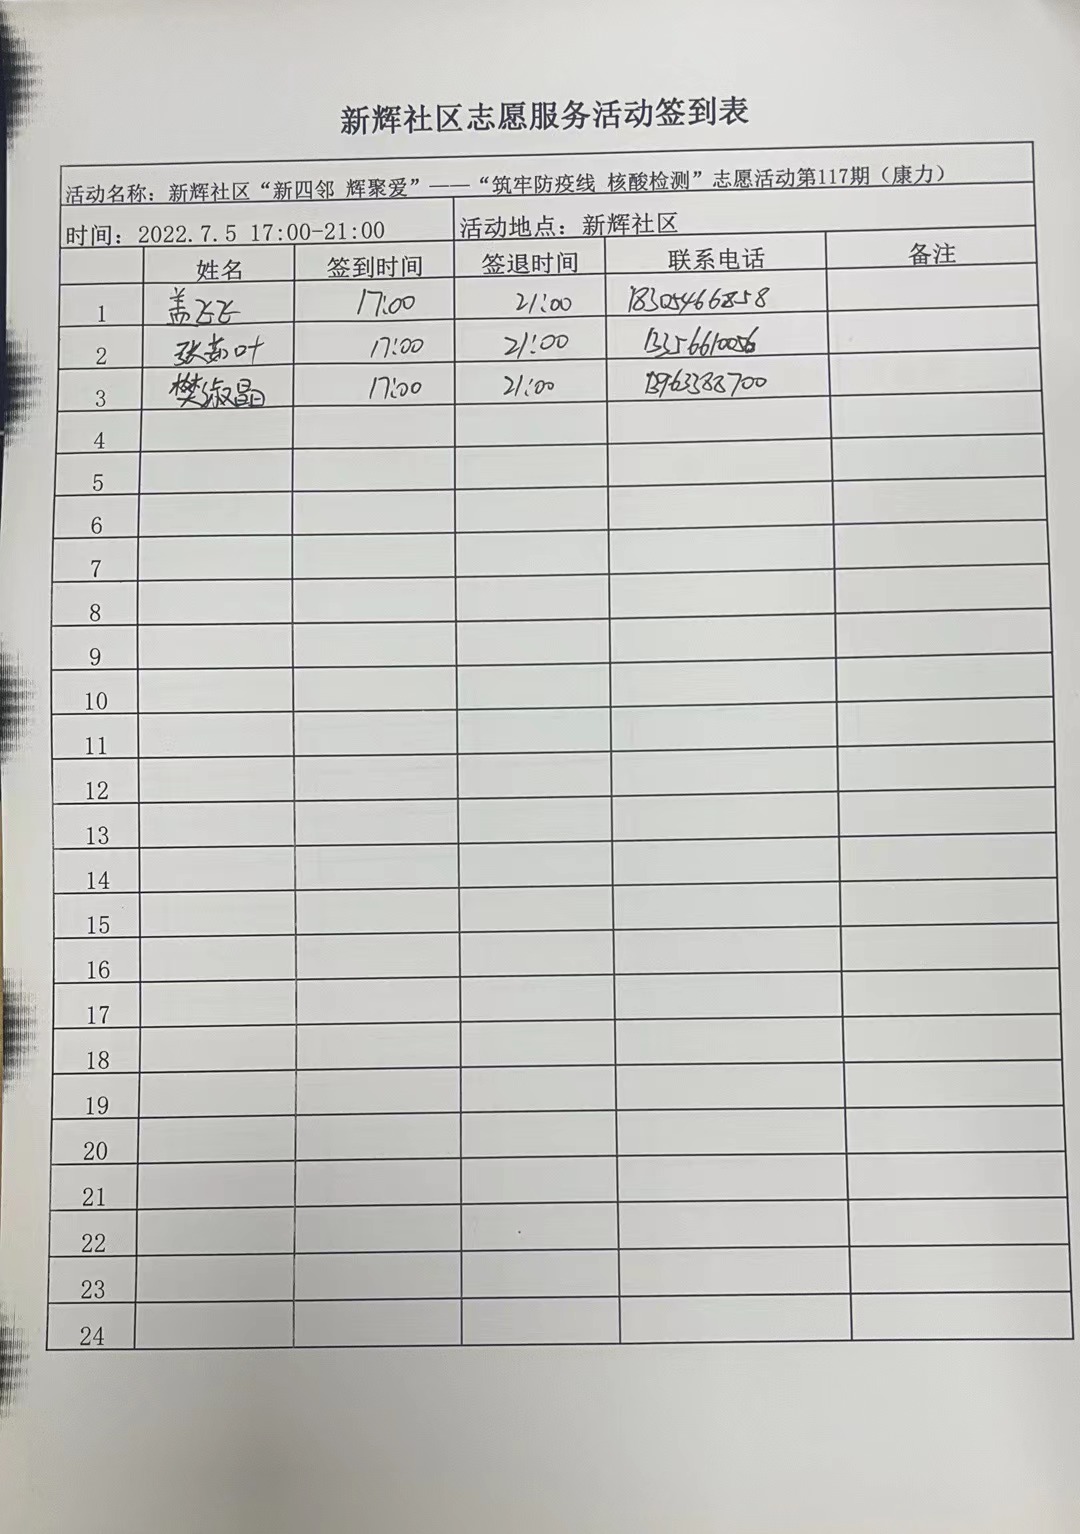 新辉社区志愿服务活动签到表
活动名称：新辉社区“新四邻 辉聚爱”——“筑牢防疫线 核酸检测”志愿活动第117期（康力）
时间：2022.7.5 17:00-21:00 活动地点：新辉社区
姓名 签到时间 签退时间 联系电话 备注
1 盖飞飞 17:00 21:00 18305466858
2 张茹叶 17:00 21:00 13356610056
3 樊淑晶 17:00 21:00 13963388700
4
5
6
7
8
9
10
11
12
13
14
15
16
17
18
19
20
21
22
23
24